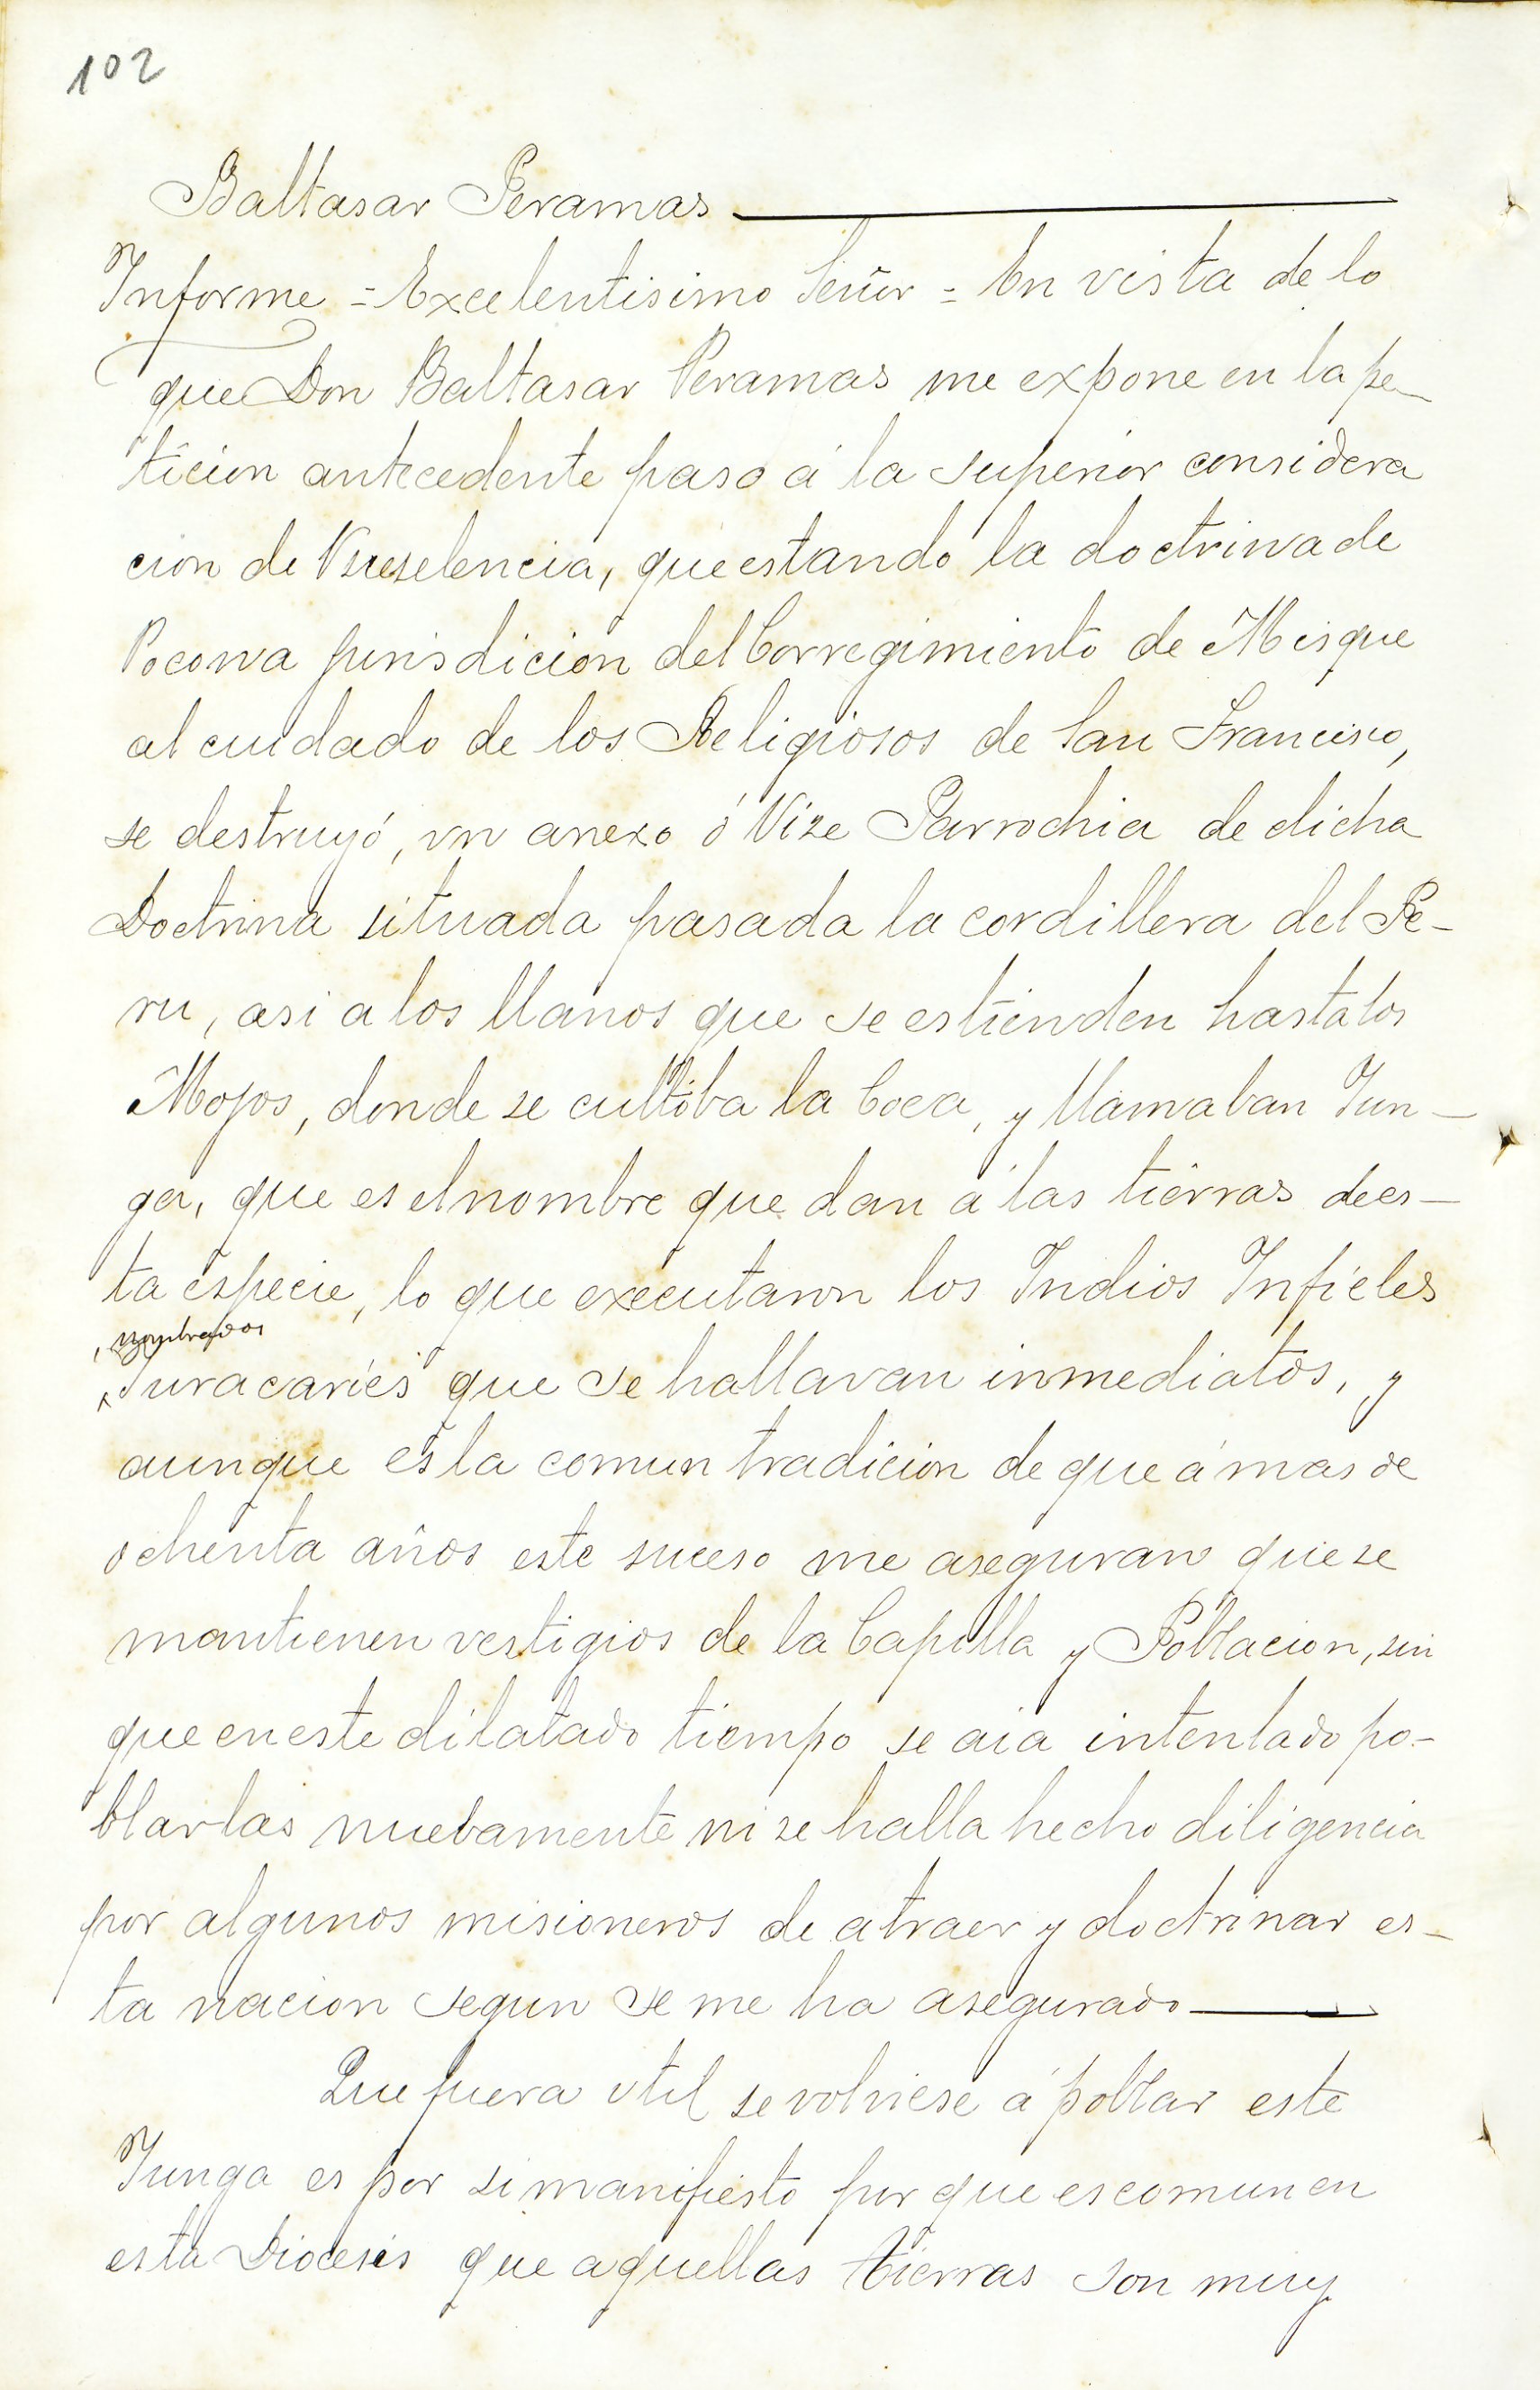 102
Baltasar Peramas
Informe = Excelentisimo Señor = En vista de lo
que Don Baltasar Peramas me expone en la pe-
ticion antecedente paso á la superior considera
cion de Vuezelencia, que estando la doctrina de
Pocona jurisdicion del Corregimiento de Misque
al cuidado de los Religiosos de San Francisco,
se destruyó, vn anexo ó Vize Parrochia de dicha
Doctrina situada pasada la cordillera del Pe-
ru, asi a los llanos que se estienden hasta los
Mojos, donde se cultiba la Coca, y llamaban Yun-
ga, que es el nombre que dan á las tierras de es-
ta especie, lo que executaron los Indios Infieles
nombrados
Yuracaries que se hallavan inmediatos, y
aunque es la comun tradicion de que á mas de
ochenta años este suceso me aseguran que se
mantienen vestigios de la Capilla y Poblacion, sin
que en este dilatado tiempo se aia intentado po-
blarlas nuebamente ni se halla hecho diligencia
por algunos misioneros de atraer y doctrinar es-
ta nacion segun se me ha asegurado
Que fuera vtil se volviese á poblar este
Yunga es por si manifiesto por que es comun en
esta Diocesis que aquellas tierras son muy